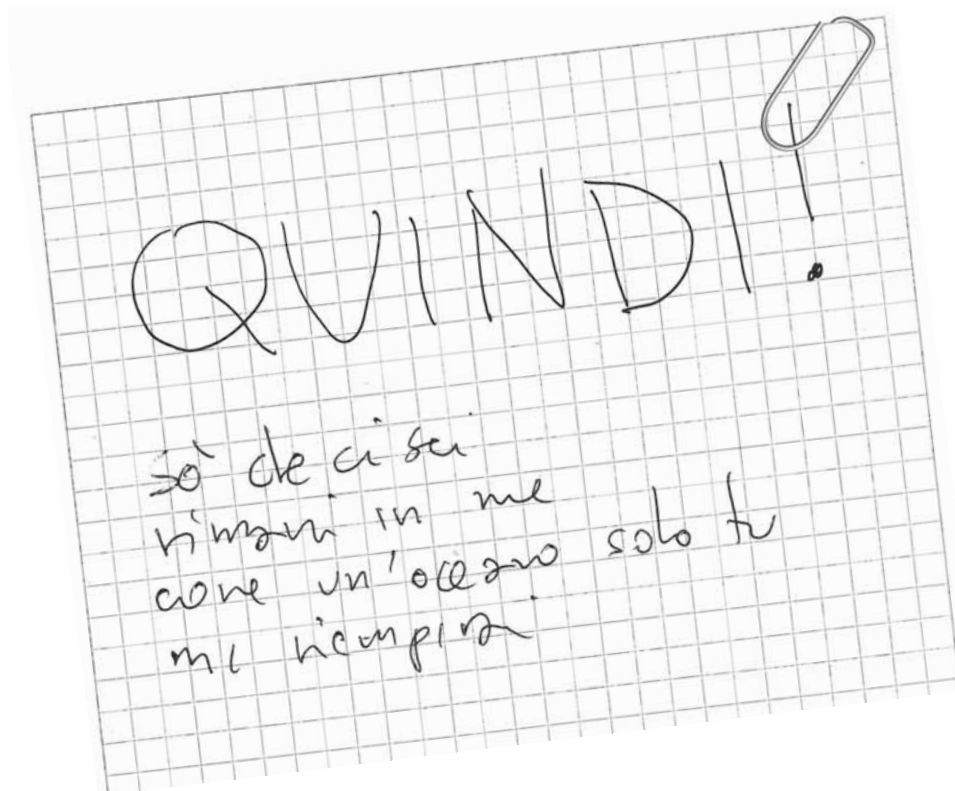 QUINDI!
sò che ci sei
rimani in me
come un'oceano solo tu
mi riempirai